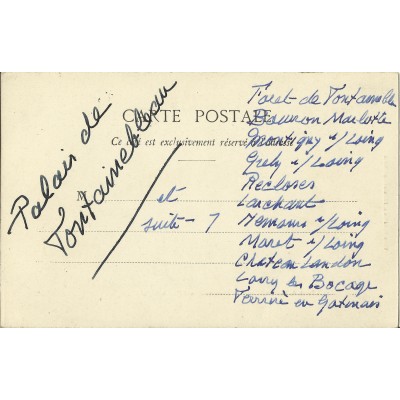 CARTE POSTALE
Ce côté est exclusivement réservé
Palais de
Fontainebleau
et
suite - 7
Foret de Fontainebl
Bourron Marlotte
Montigny s/Loing
Grez s/Loing
Recloses
Larchant
Nemours s/Loing
Moret s/Loing
Chateau Landon
Lorry les Bocage
en Gatinais